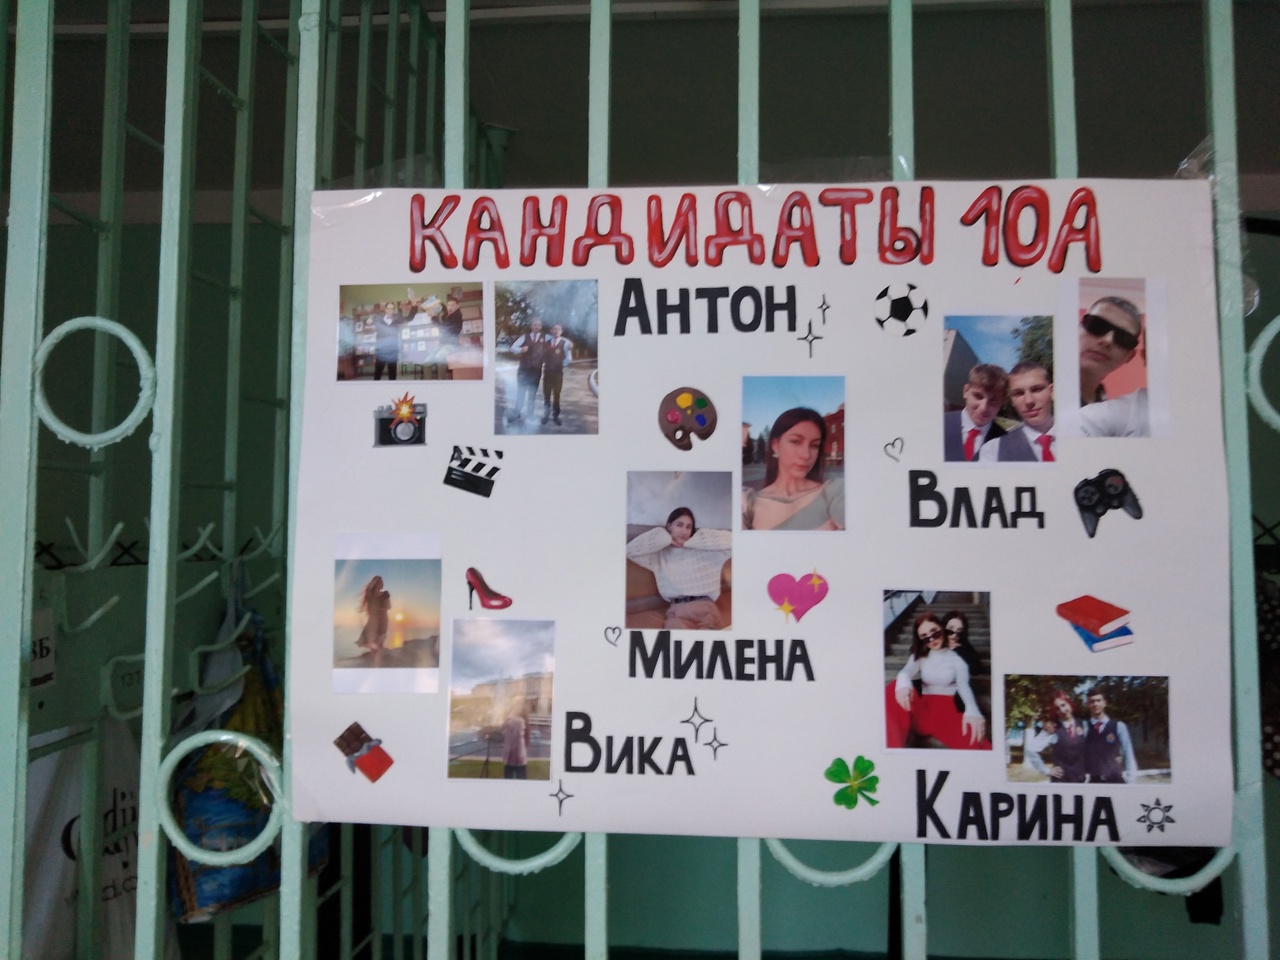 КАНДИДАТЫ 10А
АНТОН
ВЛАД
МИЛЕНА
ВИКА
КАРИНА